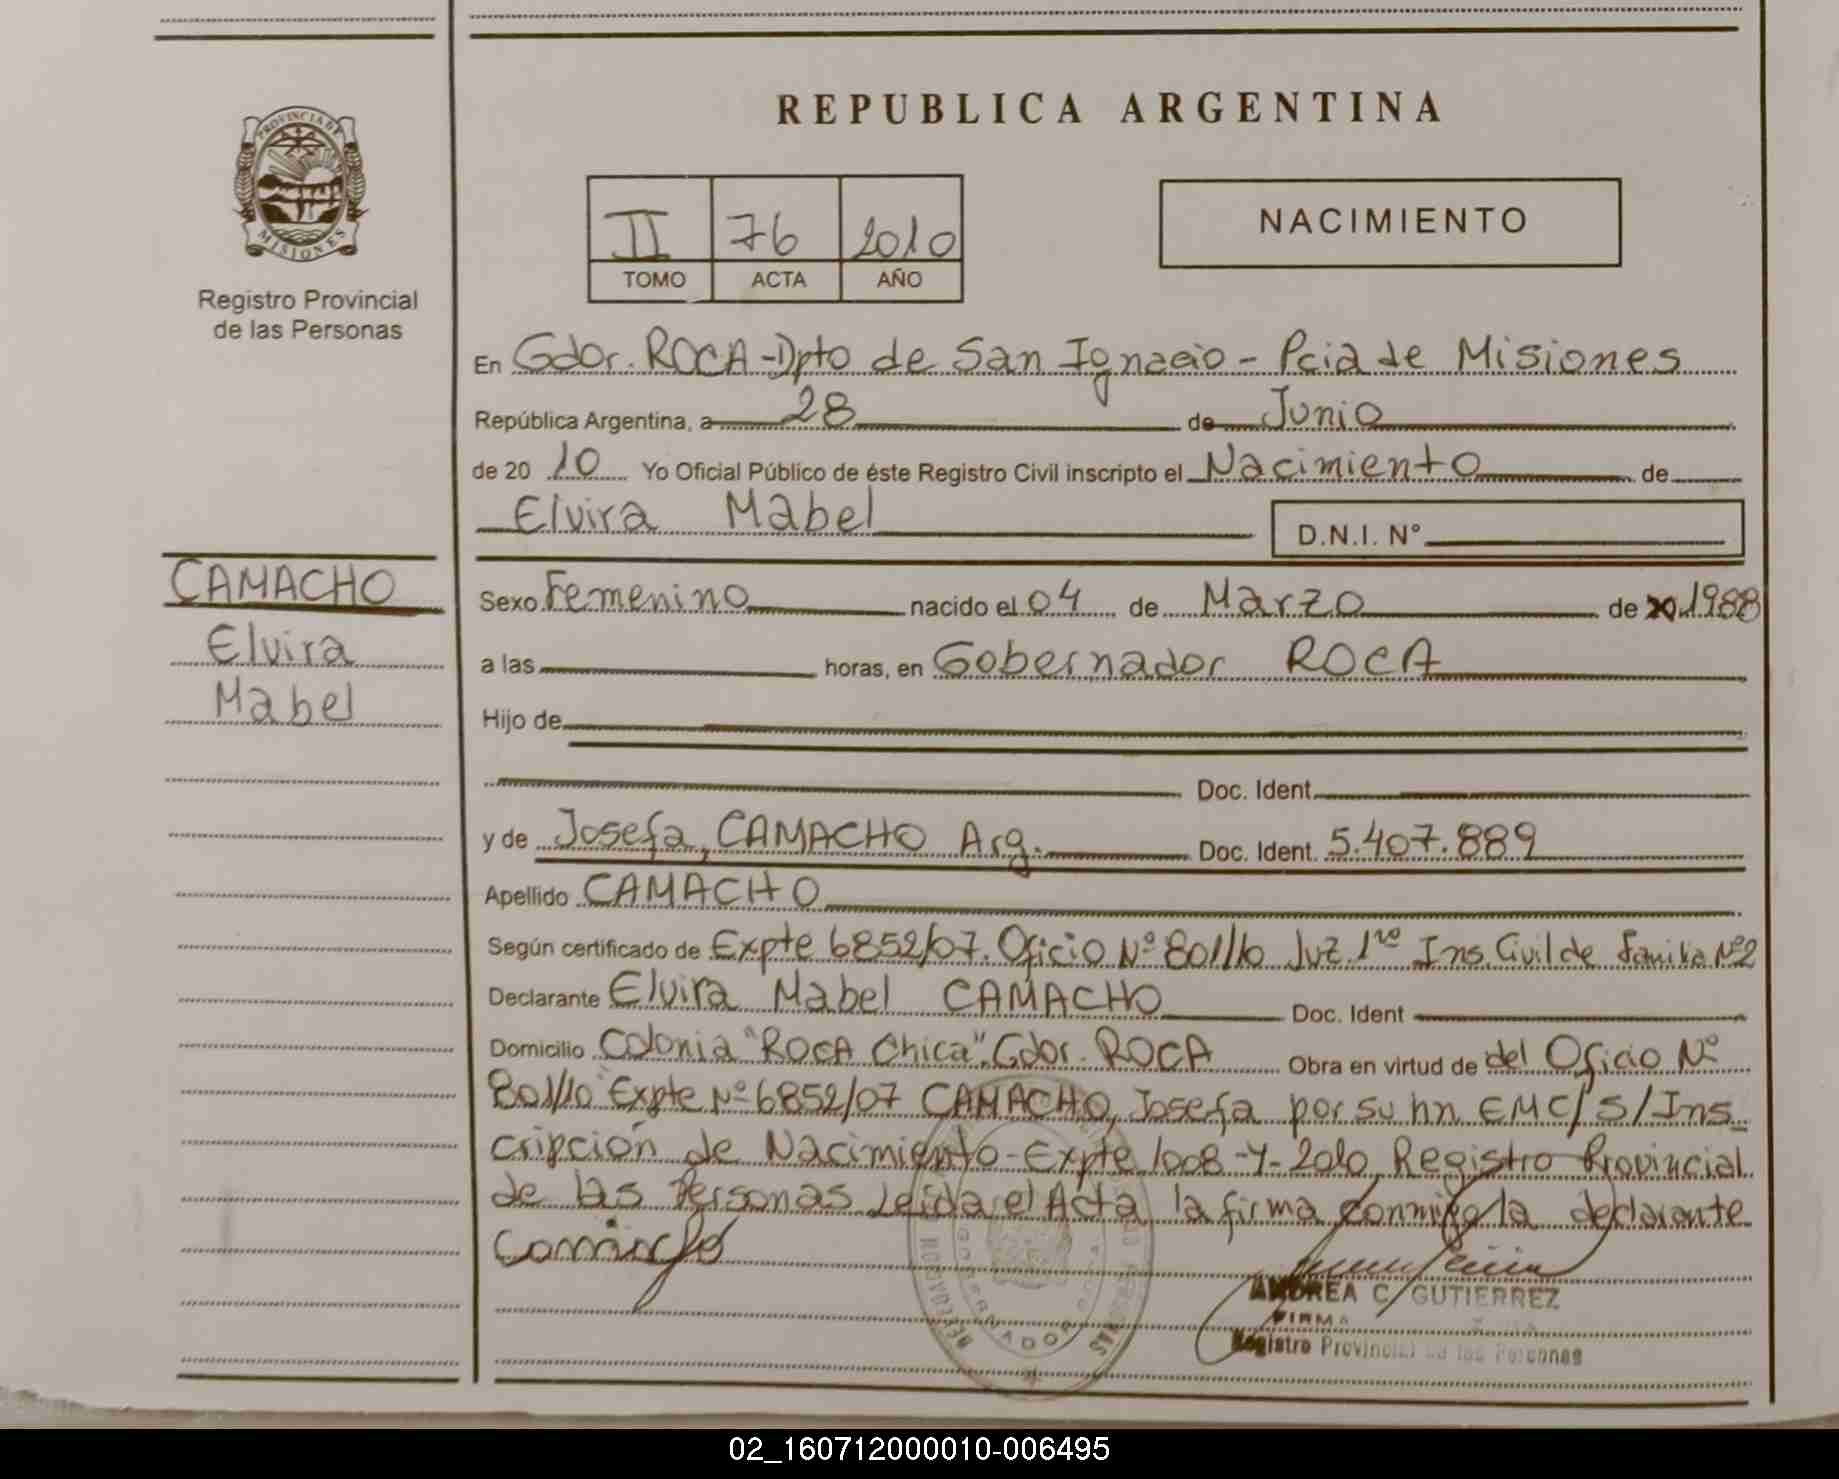 REPUBLICA ARGENTINA
PROVINCIA DE
MISIONES
Registro Provincial
de las Personas
II 76 2010
TOMO ACTA AÑO
NACIMIENTO
En Gdor. ROCA - Dpto de San Ignacio - Pcia de Misiones
República Argentina, a 28 de Junio
de 20 10 Yo Oficial Público de éste Registro Civil inscripto el Nacimiento de
Elvira Mabel D.N.I. Nº
CAMACHO
Elvira
Mabel
Sexo Femenino nacido el 04 de Marzo de 1988
a las horas, en Gobernador ROCA
Hijo de
Doc. Ident.
y de Josefa, CAMACHO Arg. Doc. Ident. 5.407.889
Apellido CAMACHO
Según certificado de Expte 6852/07. Oficio Nº 801/10 Juz. 1ro Ins. Civil de Familia Nº2
Declarante Elvira Mabel CAMACHO Doc. Ident
Domicilio Colonia "ROCA Chica". Gdor. ROCA Obra en virtud de del Oficio Nº
801/10 Expte Nº 6852/07 CAMACHO, Josefa por su hn EMC/S/Ins
cripción de Nacimiento - Expte 1008-Y-2010 Registro Provincial
de las Personas Leida el Acta la firma conmigo la declarante
Camacho
ANDREA C. GUTIERREZ
FIRMA
Registro Provincial de las Personas
GOBERNADOR ROCA
02_160712000010-006495